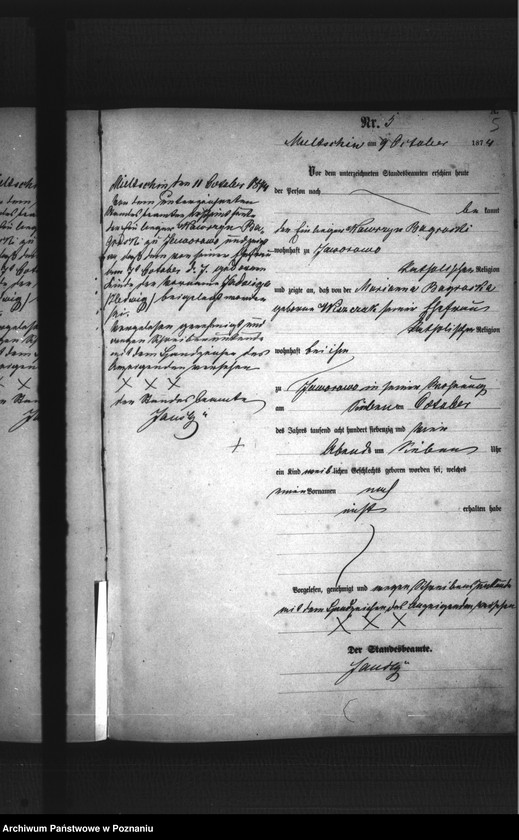 Nr. 5
Mieltschin am 9 October 1874
Vor dem unterzeichneten Standesbeamten erschien heute
der Person nach
bekannt
der Einlieger Wawrzyn Bagrowski
wohnhaft zu Jaworowo
katholischer Religion
und zeigte an, daß von der Marianna Bagrowska
geborne seiner Ehefrau
katholischer Religion
wohnhaft bei ihm
zu Jaworowo in seiner Wohnung
am sieben October
des Jahres tausend acht hundert siebenzig und vier
Abends um sieben Uhr
ein Kind weiblichen Geschlechts geboren worden sei, welches
einen Vornamen noch
nicht erhalten habe
Vorgelesen, genehmigt und wegen Schreibensunkunde
mit dem Handzeichen des Anzeigenden versehen
X X X
Der Standesbeamte.
Mieltschin den 11 October 1874
Vor dem unterzeichneten
Standesbeamten erschien heute
der Einlieger Wawrzyn Ba-
growski zu Jaworowo und zeigte
an daß dem von seiner Ehefrau
am October d. J. geborenen
Kinde der Vorname Hedwiga
(Hedwig) beigelegt worden
sei.
Vorgelesen genehmigt und
wegen Schreibensunkunde
mit dem Handzeichen des
Anzeigenden versehen
X X X
der Standesbeamte
Archiwum Państwowe w Poznaniu